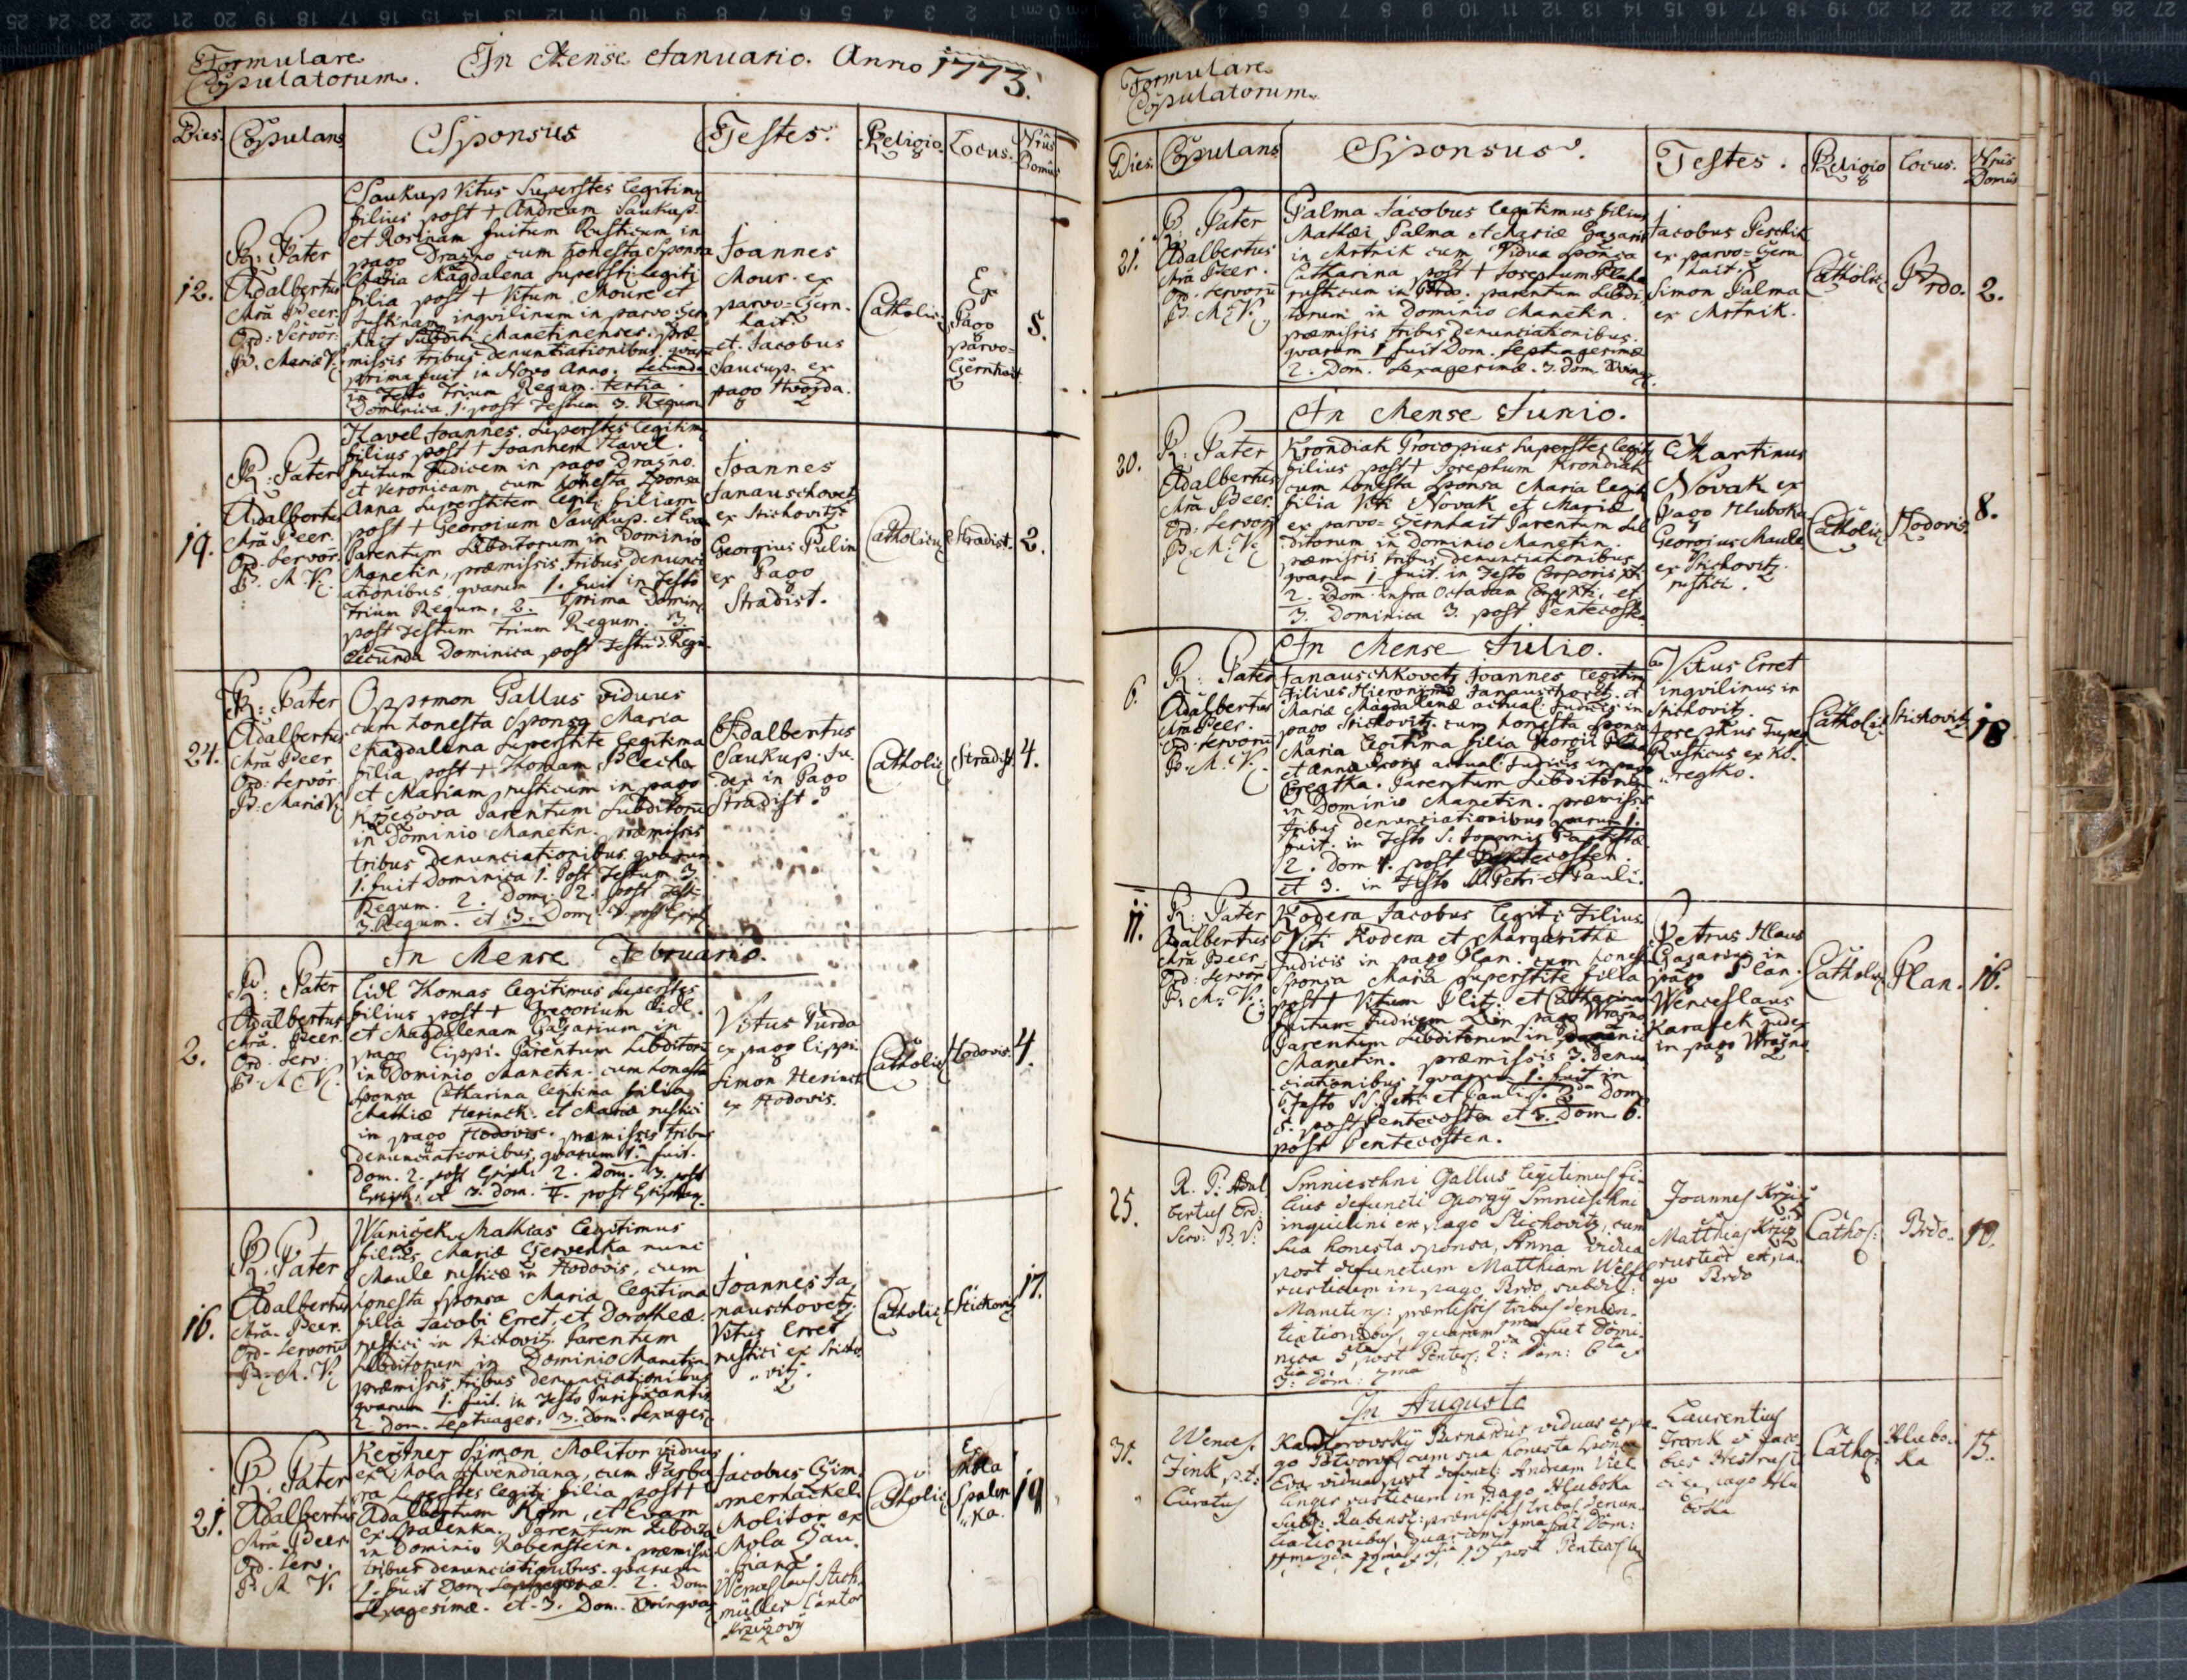 Formulare
Copulatorum.
In Mense Januario. Anno 1773.
Dies. Copulans Sponsus Testes. Religio. Locus. Nrus Domus
12.
R: Pater
Adalbertus
Mra Beer.
Ord: Servor:
B. Mariæ V.
Saukup Vitus Superstes legitimg
filius post + Andream Saukup.
et Rosinam fuitum Rusticum in
pago Dragno cum honesta Sponsa
Maria Magdalena Supersti: legiti
filia post + Vitum Moure et
Justinam inqvilinum in parvo
hait Subditi Manetinenses. præ-
missis tribus denuntiationibus. qvarum
prima fuit in Novo Anno. Secunda
in Festo Trium Regum. tertia
Dominica 1. post Festum 3. Regum
Joannes
Mour. ex
parvo-Czern-
hait.
et Jacobus
Saucup. ex
pago Hwozda.
Catholic:
Ex
Pago
parvo-
Czernhait
5.
19.
R: Pater
Adalbertus
Mra Beer.
Ord. Servor.
B. M V.
Havel Joannes. Superstes legitimg
filius post + Joannem Havel.
fuitum Judicem in pago Dragno.
et Veronicam cum honesta Sponsa
Anna Superstitem legiti: filiam
post + Georgium Saukup. et Evam
Parentum Subditorum in Dominio
Manetin, præmissis tribus denunci
ationibus qvarum 1. fuit in Festo
Trium Regum. 2. Prima Domini
post Festum Trium Regum. 3.
Secunda Dominica post Festu 3. Regu
Joannes
Janauschovetz
ex Stichovitz
Georgius Pulin
ex Pago
Stradist.
Catholicg
Stradist.
2.
24.
R: Pater
Adalbertus
Mra Beer
Ord: Servor:
B. Mariæ V.
Oppsmon Gallus viduus
cum honesta Sponsa Maria
Magdalena Superstite legitima
filia post + Thomam Blecha
et Mariam rusticum in pago
Kržešova Parentum Subditoru
in Dominio Manetin. præmissis
tribus denunciationibus. qvarum
1. fuit Dominica 1. Post Festum 3
Regum. 2. Dom. 2. post Fest.
3. Regum. et 3. Dom. 3. post Epiph
Adalbertus
Saukup. Ju
dex in Pago
Stradist.
Catholic
Stradist.
4.
In Mense Februario.
2.
R: Pater
Adalbertus
Mra. Beer.
Ord. Serv:
B. M. V.
Lidl Thomas legitimus Superstes
filius post + Gregorium Lidl.
et Magdalenam Gazarium in
pago Lippi. Parentum Subditoru
in Dominio Manetin. cum honesta
Sponsa Catharina legitima filia
Mathiæ Herinck. et Mariæ rustici
in pago Hodovis. præmissis tribus
denunciationibus, qvarum 1. fuit.
Dom. 2. post Epiph. 2. Dom. 3. post
Epiph. et 3. Dom. 4. post Epiphan.
Vitus Turda
ex pago Lippi.
Simon Herinck
ex Hodovis.
Catholic
Hodovis.
4.
16.
R. Pater
Adalbertus
Mra. Beer.
Ord. Servoru
B. M. V.
Waniczek Mathias legitimus
filius Mariæ Czervenka nunc
Maule rusticæ in Hodovis, cum
honesta Sponsa Maria legitima
filia Jacobi Erret, et Dorotheæ.
rustici in Stichovitz. Parentum
Subditorum in Dominio Manetin
præmissis tribus denunciationibus
qvarum 1. fuit. in Festo Purificantis
2. Dom. Septuages. 3. Dom. Sexages.
Joannes Ja,
nauschovetz.
Vitus Erret
rustici ex Sticho
vitz.
Catholic
Stichovitz
17.
21.
R. Pater
Adalbertus
Mra Beer
Ord. Serv.
B. M. V.
Kerstner Simon Molitor viduus
ex Mola, cum Barba
ra Superstes legiti: filia post +
Adalbertum Rom, et Evam
ex Spalenka. Parentum Subdito
in Dominio Rabenstein. præmissis
tribus denunciationibus. qvarum
1. fuit Dom. 2. Dom
Sexagesimæ. et 3. Dom. Qvinqvag
Jacobus Czim
merhackel.
Molitor ex
Mola
Wenceslaus Stich
müller Cantor
Catholic
Ex
Mola
Spalen
ka.
19
Formulare
Copulatorum.
Dies. Copulans Sponsus. Testes. Religio Locus. Nrus Domus
21.
R: Pater
Adalbertus
Mra Beer.
Ord. Servoru
B. M. V.
Palma Jacobus legitimus filius
Mathæi Palma et Mariæ Gazarii
in Mrtnik cum Vidua Sponsa
Catharina post + Josephum Blaha
rusticum in Brdo. parentum Subdi,
torum in Dominio Manetin.
præmissis tribus denunciationibus.
qvarum 1 fuit Dom. Septuagesimæ
2. Dom. Sexagesimæ. 3. Dom. Qvinqv.
Jacobus Peschik
ex parvo-Czern
hait.
Simon Palma
ex Mrtnik.
Catholic
Brdo.
2.
In Mense Junio.
20.
R: Pater
Adalbertus
Mra Beer.
Ord. Servor
B. M. V.
Krondiak Procopius Superstes legiti
filius post + Josephum Krondiak
cum honesta Sponsa Maria legit
filia Viti Novak et Mariæ
ex parvo-Czernhait Parentum Sub
ditorum in Dominio Manetin.
præmissis tribus denunciationibus
qvarum 1. fuit. in Festo Corporis Xti
2. Dom. infra Octavam Corp. Xti. et
3. Dominica 3. post Pentecoste.
Martinus
Novak ex
Pago Hluboka
Georgius Maule
ex Stichovitz.
rustici.
Catholic
Hodovis.
8.
In Mense Julio.
6.
R: Pater
Adalbertus
Mra Beer.
Ord. Servoru
B. M. V.
Janauschkovetz Joannes legitim
Filius Hieronimi Janauschovetz. et
Mariæ Magdalenæ actual: Judicis in
pago Stichovitz. cum honesta Sponsa
Maria legitima filia Georgii
et Anna Uxoris actual. Judicis in pago
Parentum Subditorum
in Dominio Manetin. præmissis
tribus denunciationibus qvarum 1.
fuit. in Festo S. Joannis Baptistæ
2. Dom 4. post Pentecosten.
et 3. in Festo SS. Petri et Pauli.
Vitus Erret
inqvilinus in
Stichovitz.
Josephus
Rusticus ex Ko.
Catholic
Stichovitz
18
11.
R: Pater
Adalbertus
Mra Beer
Ord: Servor
B. M. V.
Kodera Jacobus legiti: Filius
Viti Kodera et Margarithæ
Judicis in pago Plan. cum hones
Sponsa Maria Superstite filia
post + Vitum Plitz: et Catharina
fuitum Judicem in pago Wražno
Parentum Subditorum in Dominio
Manetin. præmissis 3. denun
ciationibus, qvarum 1. fuit in
Festo SS. Petri et Pauli. 2da Dom
5. post Pentecosten et 3. Dom 6.
post Pentecosten.
Petrus Klaus
Gazarius in
pago Plan.
Wenceslaus
Karasek judex
in pago Wražno
Catholic
Plan.
16.
25.
R. P. Adal
bertus Ord:
Serv: B. V.
Smnieschni Gallus legitimus fi-
lius defuncti Georgy Smnieschni
inquilini ex pago Stichovitz, cum
sua honesta sponsa, Anna vidua
post defunctum Matthiam
rusticum in pago Brdo subdit:
Manetin: præmissis tribus denun-
tiationibus, quarum 1ma fuit Domi-
nica 5ta post Pentec: 2: Dom: 6ta et
3tia Dom: 7ma
Joannes Kržiž
Matthias Kržiž
rustici ex pa-
go Brdo
Cathol:
Brdo.
10.
In Augusto
31.
Wences.
Fink p.t.
Curatus
Kantorovsky Bernardus viduus ex pa-
go Potvorov, cum sua honesta Sponsa
Eva vidua post defunct: Andream Viel
linger rusticum in pago Hluboka
Subd: Rabenst: præmissis tribus denun-
tiationibus, quarum 1ma fuit Dom:
post Pentecosten
Laurentius
Frank et Jaco
bus
ex pago Hlu
boka
Cathol:
Hlubo-
ka
15.